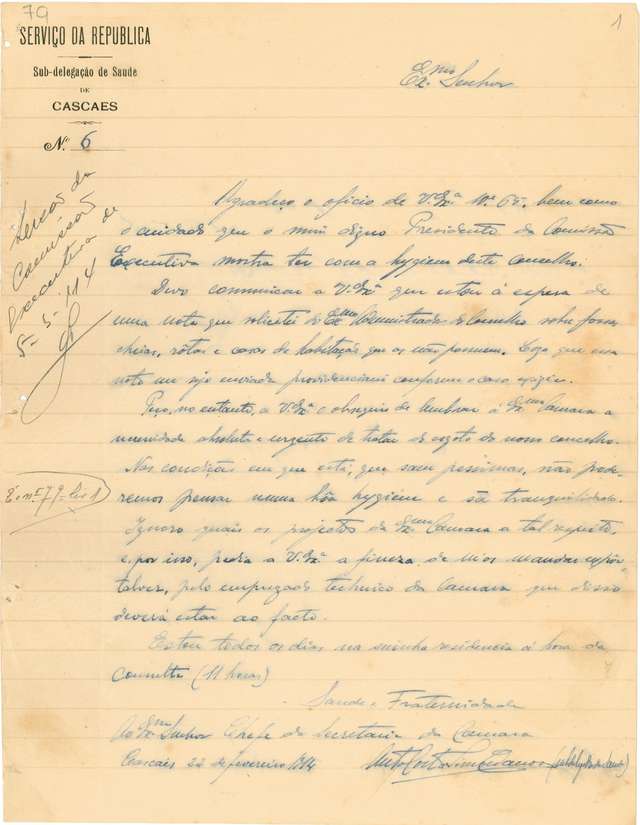 79
1
SERVIÇO DA REPUBLICA
Sub-delegação de Saude
DE
CASCAES
N.º 6
Exmo Senhor
Agradeço o oficio de V. Exª Nº 65, bem como
o cuidado que o mui digno Presidente da Comissão
Executiva mostra ter com a hygiene deste concelho.
Devo communicar a V. Exª que estou á espera de
uma nota que solicitei do Exmo Administrador do Concelho sobre fossas
cheias, rôtas e casas de habitação que as não possuem. Logo que essa
nota me seja enviada providenciarei conforme o caso exigir.
Peço, no entanto, a V. Exª o obsequio de lembrar á Exma Camara a
necessidade absoluta e urgente de tratar do esgoto do nosso concelho.
Nas condições em que está, que sam pessimas, não pode-
remos pensar numa bôa hygiene e sã tranquilidade.
Ignoro quais os projectos da Exma Camara a tal respeito,
e, por isso, pedia a V. Exª a fineza, de m'os mandar expôr,
talvez, pelo empregado technico da Camara que disso
deverá estar ao facto.
Estou todos os dias na minha residencia á hora da
consulta (11 horas)
Saude e Fraternidade
Ao Exmo Senhor Chefe da Secretaria da Camara
Cascaes 22 de fevereiro 1914
Comissão
Executiva de
5-3-914
E. nº 79 - Lº 1